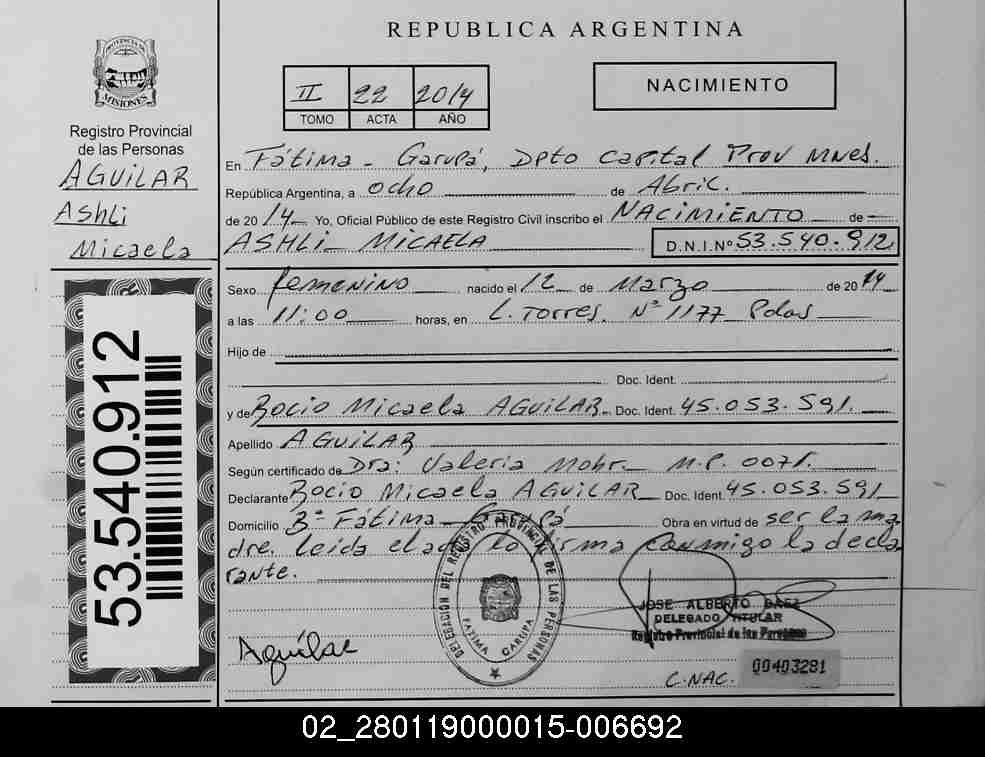 REPUBLICA ARGENTINA
PROVINCIA DE
MISIONES
Registro Provincial
de las Personas
AGUILAR
Ashli
Micaela
53.540.912
II 22 2014
TOMO ACTA AÑO
NACIMIENTO
En Fátima - Garupá, Dpto Capital Prov Mnes.
República Argentina, a ocho de Abril.
de 2014 Yo, Oficial Público de este Registro Civil inscribo el NACIMIENTO de
ASHLI MICAELA D.N.I.Nº 53.540.912
Sexo femenino nacido el 12 de Marzo de 2014
a las 11:00 horas, en L. Torres. Nº 1177 Pdas
Hijo de
Doc. Ident.
y de Rocio Micaela AGUILAR Doc. Ident. 45.053.591.
Apellido AGUILAR
Según certificado de Dra: Valeria Mohr M.P. 0071.
Declarante Rocio Micaela AGUILAR Doc. Ident. 45.053.591
Domicilio Bº Fátima - Garupá Obra en virtud de ser la ma
dre. Leida el acta lo firma conmigo la decla
rante.
DELEGACION DEL REGISTRO PROVINCIAL DE LAS PERSONAS
FATIMA GARUPA
JOSE ALBERTO BAEZ
DELEGADO TITULAR
Registro Provincial de las Personas
Aguilar
C.NAC. 00403281
02_280119000015-006692